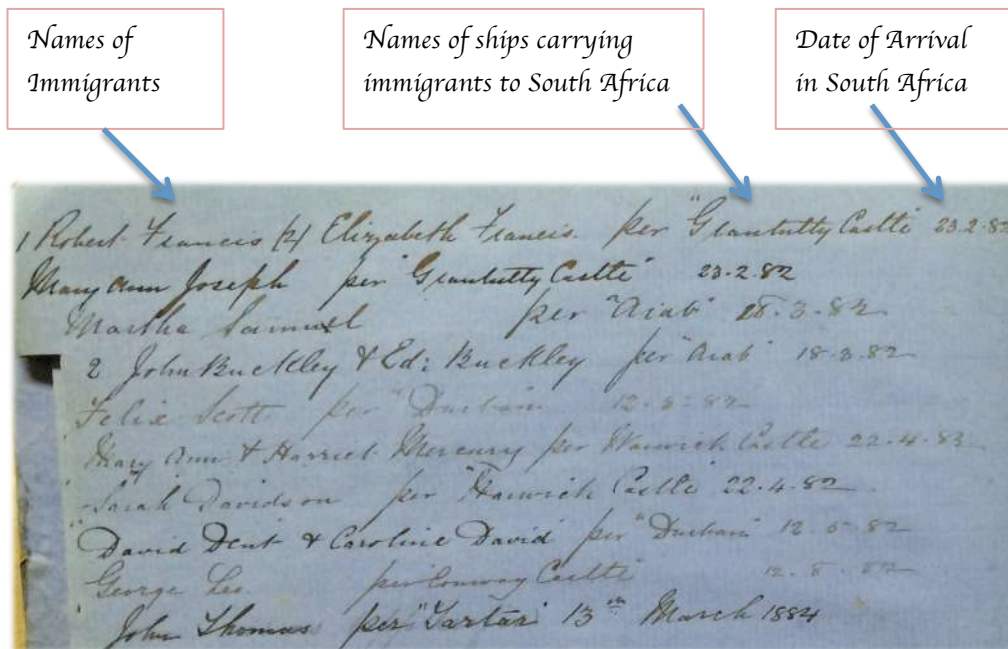 Names of
Immigrants
Names of ships carrying
immigrants to South Africa
Date of Arrival
in South Africa
1 Robert Francis (2) Elizabeth Francis per "Grantully Castle" 23.2.82
Mary Ann Joseph per "Grantully Castle" 23.2.82
Martha Samuel per "Arab" 3.82
2 John Buckley & Ed: Buckley per "Arab" 18.3.82
Felix Scott per "Durban" 12.5.82
Mary Ann & Harriet Mercury per Warwick Castle 22.4.82
Sarah Davidson per "Warwick Castle" 22.4.82
David Dent & Caroline David per "Durban" 12.5.82
George Leo per "Conway Castle" 12.8.82
John Thomas per "Tartar" 13th March 1884